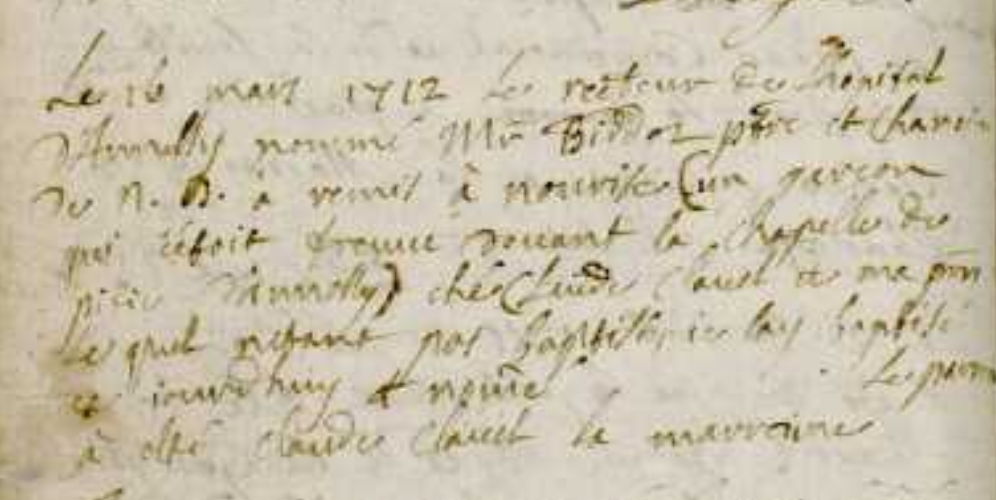 Le 16 mars 1712 Le recteur de L'hopital
D'Annessy nommé Mr Biddol ptre et chanoi
De N. D. a remis à nourise (un garcon
qui s'étoit trouvé devant la chapelle de
pitié D'annessy) chés Claude Clavel de ma parr
Le quel n'etant pas baptisé, ie lay baptisé
ce iourd'huy & nomé
Le parra
à esté Claude Clavel la marreine